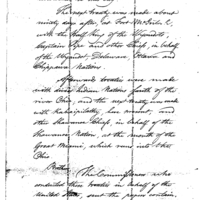 The next treaty was made about
ninety days after, at Fort McIntosh,
with the Half King of the Wyandots,
Captain Pipe and other Chiefs, in behalf
of the Wyandot, Delaware, Ottawa and
Chippewa Nations.
Afterwards treaties were made
with some Indian Nations south of the
river Ohio, and the next treaty was made
with
other Shawanee Chiefs, in behalf of the
Shawanee Nation, at the mouth of the
Great Miami, which runs into the
Ohio.
The Commissioners who
conducted these treaties in behalf of the
United States sent the papers contain-